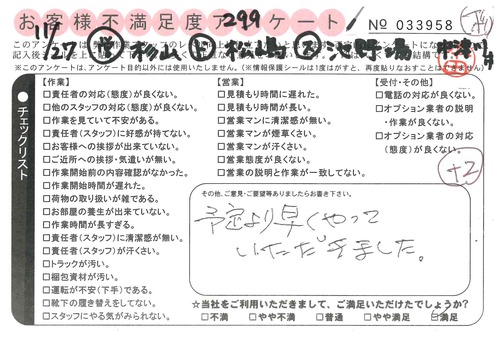 お客様不満足度アンケート
299
No 033958
11/27 営 杉山 作 松嶋 池野場
【作業】
□責任者の対応(態度)が良くない。
□他のスタッフの対応(態度)が良くない。
□作業を見ていて不安がある。
□責任者(スタッフ)に好感が持てない。
□お客様への挨拶が出来ていない。
□ご近所への挨拶・気遣いが無い。
□作業開始前の内容確認がなかった。
□作業開始時間が遅れた。
□荷物の取り扱いが雑である。
□お部屋の養生が出来ていない。
□作業時間が長すぎる。
□責任者(スタッフ)に清潔感が無い。
□責任者(スタッフ)が汗くさい。
□トラックが汚い。
□梱包資材が汚い。
□運転が不安(下手)である。
□靴下の履き替えをしてない。
□スタッフにやる気がみられない。
【営業】
□見積もり時間に遅れた。
□見積もり時間が長い。
□営業マンに清潔感が無い。
□営業マンが煙草くさい。
□営業マンが汗くさい。
□営業態度が良くない。
□営業の説明と作業が一致してない。
【受付・その他】
□電話の対応が良くない。
□オプション業者の説明
・作業が良くない。
□オプション業者の対応
(態度)が良くない。
●チェックリスト
+2
その他、ご意見・ご要望等ありましたらお書き下さい。
予定より早くやって
いただきました。
☆当社をご利用いただきまして、ご満足いただけたでしょうか?
□不満 □やや不満 □普通 □やや満足 ☑満足